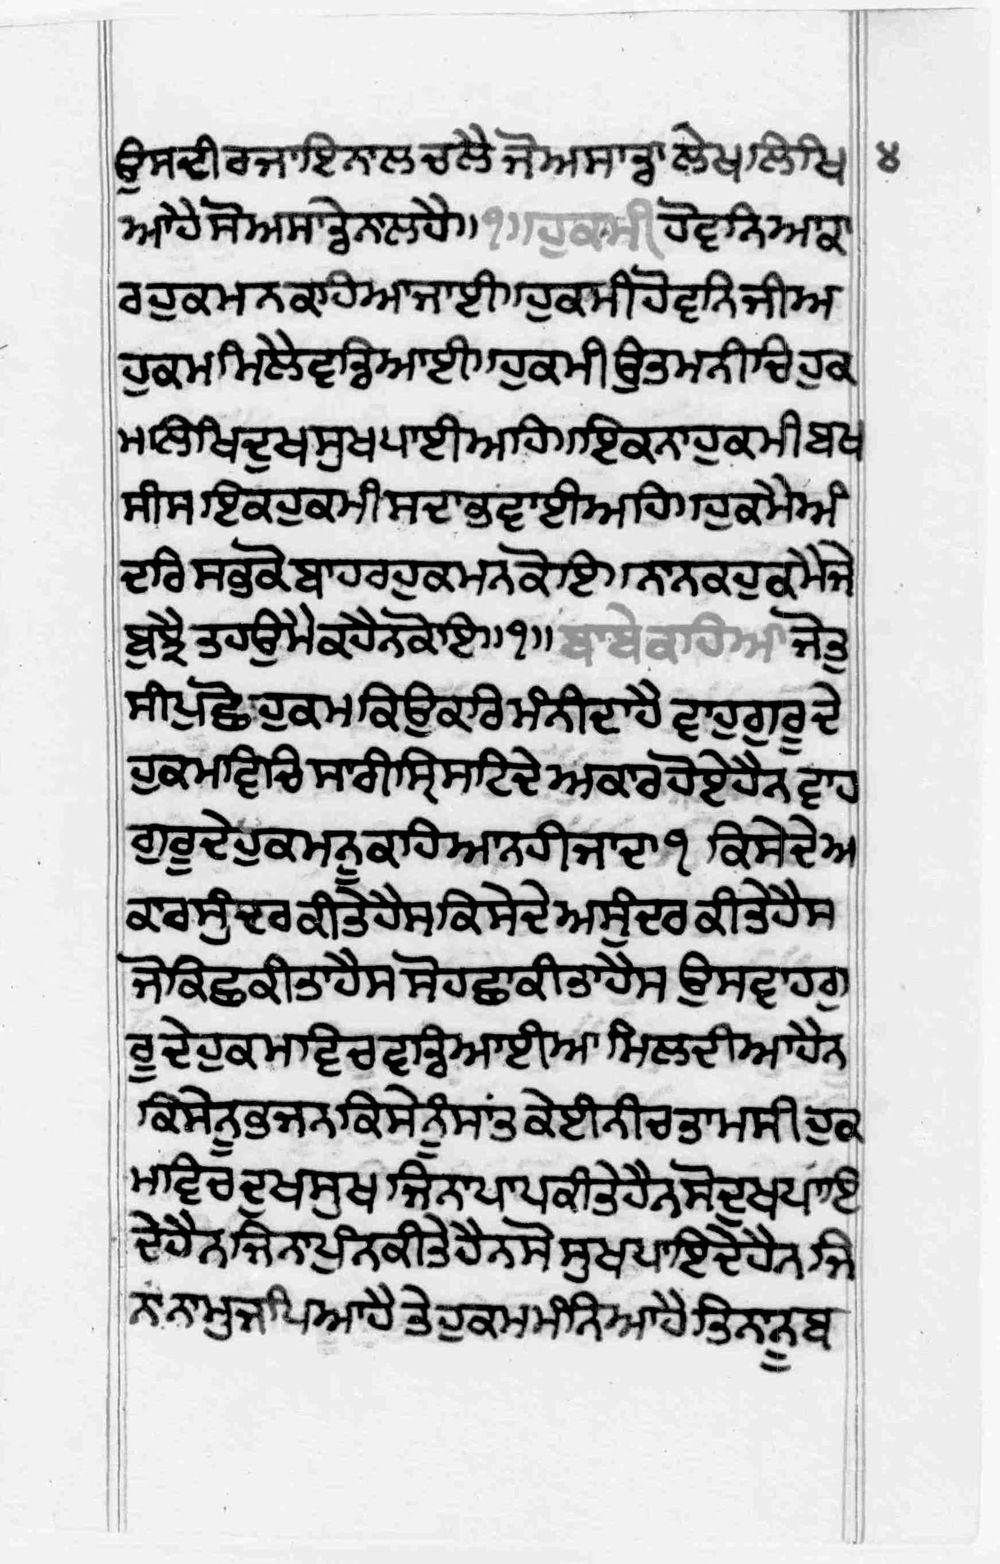 ਉਸਦੀਰਜਾਇਨਾਲਚਲੈਜੋਅਸਾਡਾਲੇਖਲਿਖਿ ੪
ਆਹੈਸੋਅਸਾਡੇਨਾਲਹੈ॥੧॥ਹੁਕਮੀਹੋਵਨਿਆਕਾ
ਰਹੁਕਮਨਕਹਿਆਜਾਈ॥ਹੁਕਮੀਹੋਵਨਿਜੀਅ
ਹੁਕਮਿਮਿਲੈਵਡਿਆਈ॥ਹੁਕਮੀਉਤਮਨੀਚਿਹੁਕ
ਮਲਿਖਿਦੁਖਸੁਖਪਾਈਅਹਿ॥ਇਕਨਾਹੁਕਮੀਬਖ
ਸੀਸਇਕਹੁਕਮੀਸਦਾਭਵਾਈਅਹਿ॥ਹੁਕਮੈਅੰ
ਦਰਿਸਭੁਕੋਬਾਹਰਹੁਕਮਨਕੋਇ॥ਨਾਨਕਹੁਕਮੈਜੇ
ਬੁਝੈਤਹਉਮੈਕਹੈਨਕੋਇ॥੧॥ਬਾਬੇਕਹਿਆਜੋਤੁ
ਸੀਪੁਛੋਹੁਕਮਕਿਉਕਰਿਮੰਨੀਦਾਹੈਵਾਹੁਗੁਰੂਦੇ
ਹੁਕਮਵਿਚਿਸਾਰੀਸ੍ਰਿਸਟਿਦੇਅਕਾਰਹੋਏਹੈਨਵਾਹ
ਗੁਰੂਦੇਹੁਕਮਨੂਕਹਿਆਨਹੀਜਾਦਾ੧ ਕਿਸੇਦੇਅ
ਕਾਰਸੁੰਦਰਕੀਤੇਹੈਸਕਿਸੇਦੇਅਸੁੰਦਰਕੀਤੇਹੈਸ
ਜੋਕਿਛਕੀਤਾਹੈਸਸੋਹਛਾਕੀਤਾਹੈਸਉਸਵਾਹਗੁ
ਰੂਦੇਹੁਕਮਵਿਚਵਡਿਆਈਆਮਿਲਦੀਆਹੈਨ
ਕਿਸੇਨੂਭਜਨਕਿਸੇਨੂੰਸਾਂਤਕੇਈਨੀਚਤਾਮਸੀਹੁਕ
ਮਵਿਚਦੁਖਸੁਖਜਿਨਾਪਾਪਕੀਤੇਹੈਨਸੋਦੁਖਪਾਇ
ਦੇਹੈਨਜਿਨਾਪੁੰਨਕੀਤੇਹੈਨਸੋਸੁਖਪਾਇਦੇਹੈਨਜਿ
ਨਾਨਾਮੁਜਪਿਆਹੈਤੇਹੁਕਮਮੰਨਿਆਹੈਤਿਨਾਨੂਬ